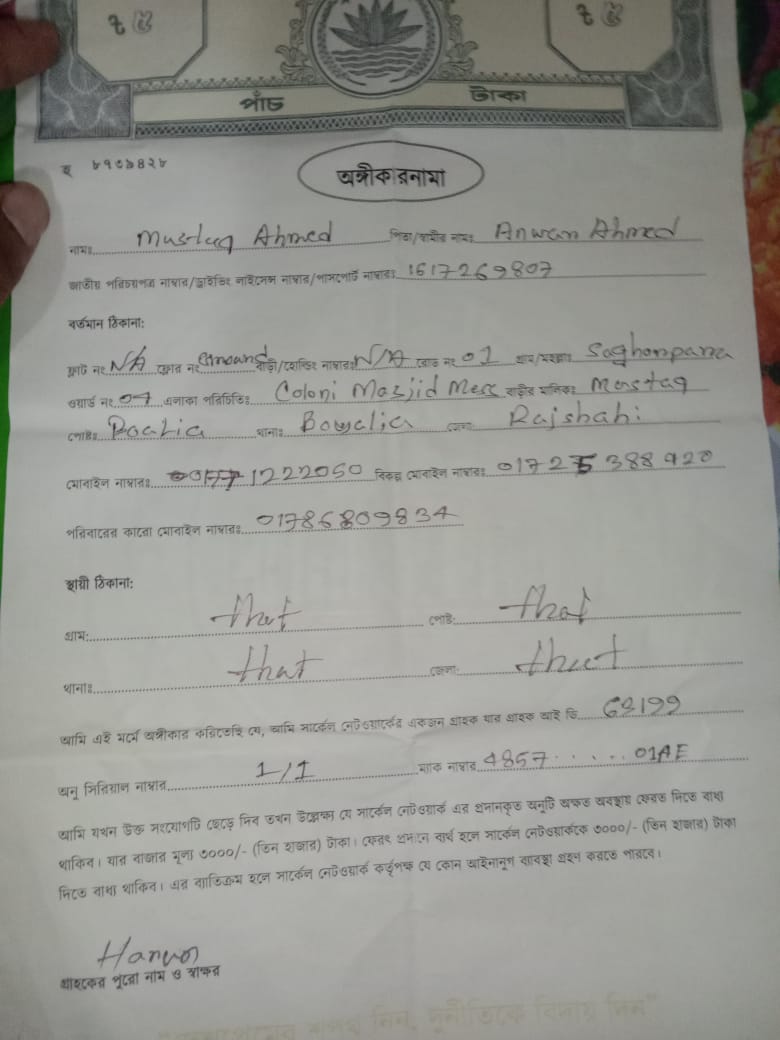 ৫ ৫
পাঁচ টাকা
৮৭৩৯৪২৮
অঙ্গীকারনামা
নামঃ Mustaq Ahmed পিতা/স্বামীর নামঃ Anwar Ahmed
জাতীয় পরিচয়পত্র নাম্বার/ড্রাইভিং লাইসেন্স নাম্বার/পাসপোর্ট নাম্বারঃ 1617269807
বর্তমান ঠিকানা:
ফ্লাট নং NA ফ্লোর নং Ground বাড়ী/হোল্ডিং নাম্বারঃ N/A রোড নং 01 গ্রাম/মহল্লাঃ Saghonpara
ওয়ার্ড নং 07 এলাকা পরিচিতিঃ Coloni Masjid Mess বাড়ীর মালিকঃ Mastaq
পোষ্টঃ থানাঃ Boyalia জেলাঃ Rajshahi
মোবাইল নাম্বারঃ 01771222050 বিকল্প মোবাইল নাম্বারঃ 01725388920
পরিবারের কারো মোবাইল নাম্বারঃ 01786809834
স্থায়ী ঠিকানা:
গ্রাম: that পোষ্ট: that
থানাঃ that জেলা: that
আমি এই মর্মে অঙ্গীকার করিতেছি যে, আমি সার্কেল নেটওয়ার্কের একজন গ্রাহক যার গ্রাহক আই ডি 69199
অনু সিরিয়াল নাম্বার 1/1 ম্যাক নাম্বার 4857......01AE
আমি যখন উক্ত সংযোগটি ছেড়ে দিব তখন উল্লেক্ষ্য যে সার্কেল নেটওয়ার্ক এর প্রদানকৃত অনুটি অক্ষত অবস্থায় ফেরত দিতে বাধ্য
থাকিব। যার বাজার মূল্য ৩০০০/- (তিন হাজার) টাকা। ফেরৎ প্রদানে ব্যর্থ হলে সার্কেল নেটওয়ার্ককে ৩০০০/- (তিন হাজার) টাকা
দিতে বাধ্য থাকিব। এর ব্যতিক্রম হলে সার্কেল নেটওয়ার্ক কর্তৃপক্ষ যে কোন আইনানুগ ব্যবস্থা গ্রহন করতে পারবে।
গ্রাহকের পুরো নাম ও স্বাক্ষর
শপথ নিন, দুর্নীতিকে বিদায় দিন"